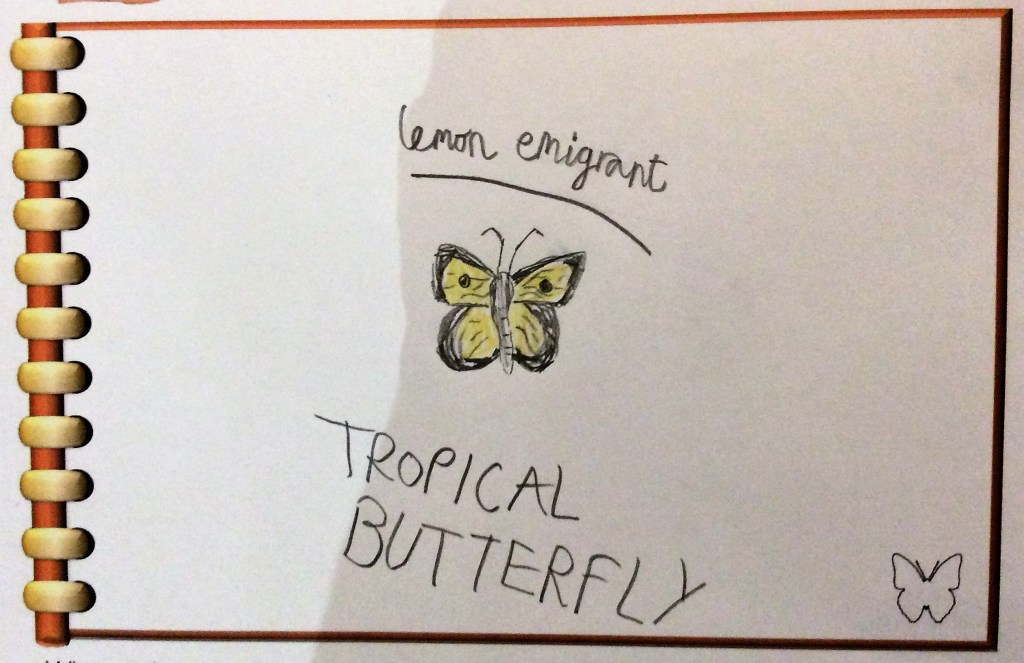 lemon emigrant
TROPICAL
BUTTERFLY